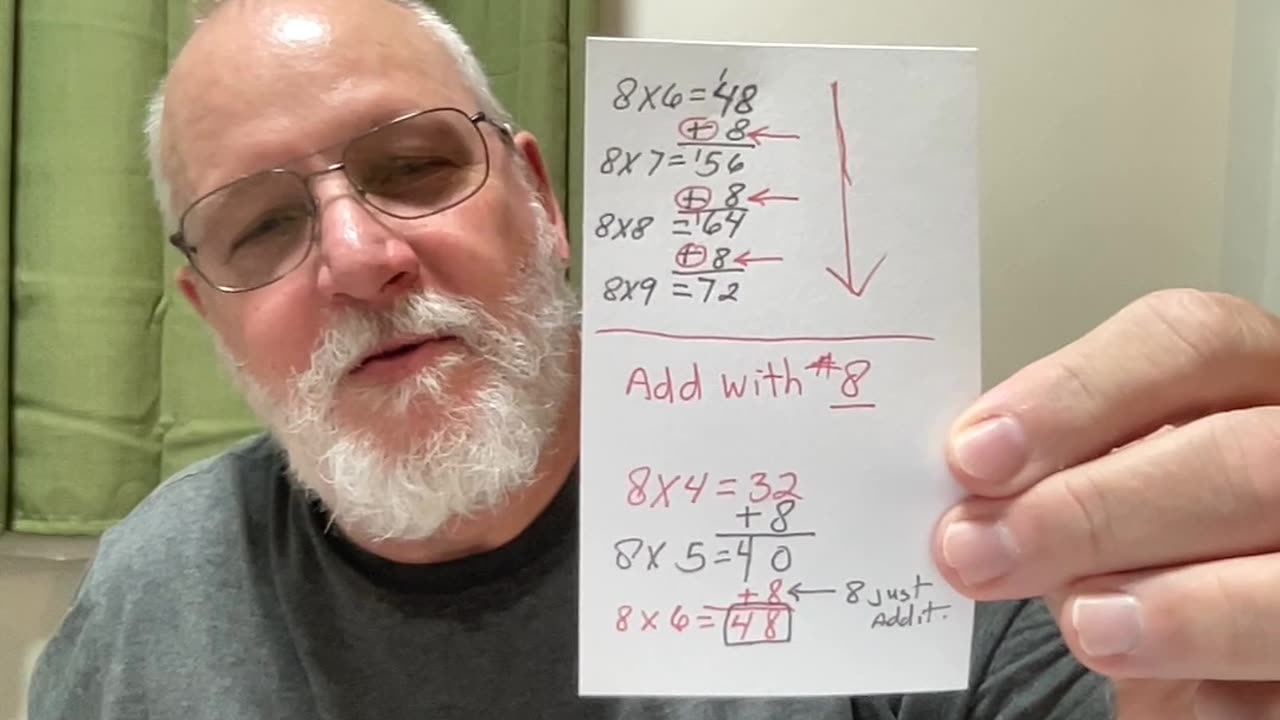 8x6=48
+ 8
8x7=56
+ 8
8x8 =64
+ 8
8x9 =72
Add with #8
8x4=32
+8
8x 5=40
+8 ← 8 just
Add it.
8x6=48